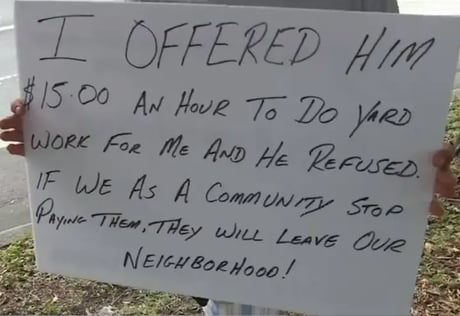 I OFFERED HIM
$15.00 AN HOUR TO DO YARD
WORK FOR ME AND HE REFUSED.
IF WE AS A COMMUNITY STOP
PAYING THEM, THEY WILL LEAVE OUR
NEIGHBORHOOD!